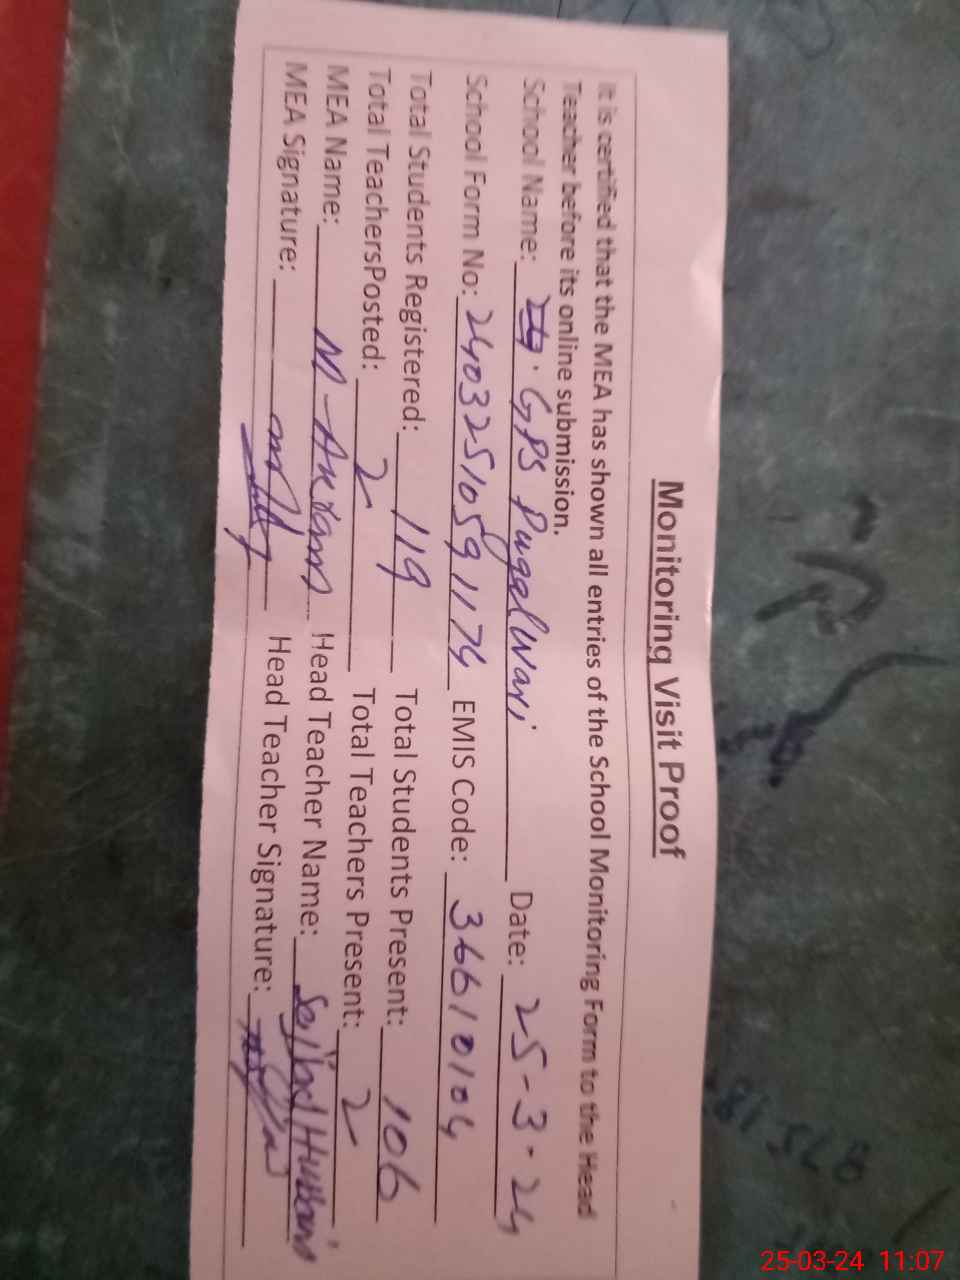 Monitoring Visit Proof
It is certified that the MEA has shown all entries of the School Monitoring Form to the Head
Teacher before its online submission.
School Name: GPS Pugalwari Date: 25-3-24
School Form No: 24032510591174 EMIS Code: 36610104
Total Students Registered: 119 Total Students Present: 106
Total TeachersPosted: 2 Total Teachers Present: 2
MEA Name: M-Akram Head Teacher Name: Sajjad Hussain
MEA Signature: Head Teacher Signature:
25-03-24 11:07